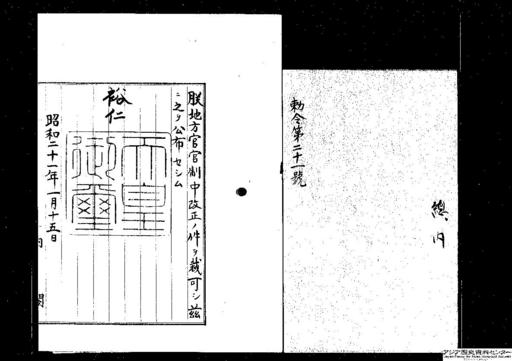 總
内
勅令第二十一號
朕地方官官制中改正ノ件ヲ裁可シ茲
ニ之ヲ公布セシム
裕仁
天皇
御璽
昭和二十一年一月十五日
内閣
アジア歴史資料センター